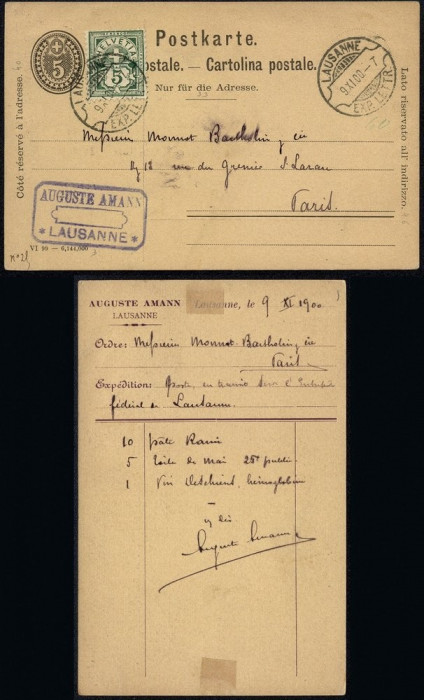 Postkarte.
5 HELVETIA 5
ostale. — Cartolina postale.
Nur für die Adresse.
LAUSANNE
9.XI.00.-7
EXP.LETTR.
Côté réservé à l'adresse.
Lato riservato all' Indirizzo.
Messieurs Monnot Bartholin & cie
rue du Grenier St Lazare
Paris.
AUGUSTE AMANN
* LAUSANNE *
VI 99 — 6,144,000
AUGUSTE AMANN
LAUSANNE
Lausanne, le 9 XI 1900
Ordre: Messieurs Monnot Bartholin & cie
Paris
Expéditions: Poste, en
fédéral de Lausanne.
10 pâte
5 de Mai 25
1 Vin Deschiens, hémoglobine
Auguste Amann